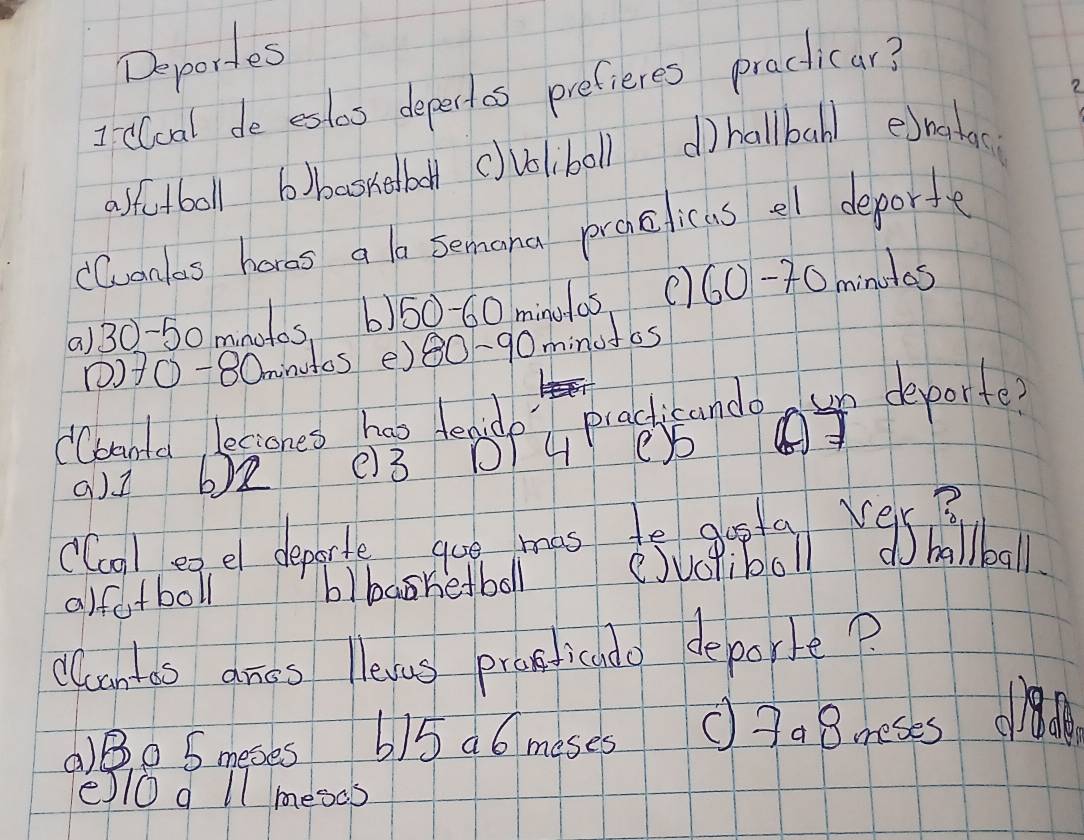 Deportes
1-¿Cual de estos depertos prefieres practicar?
a) futball b) basketball c) Voliball d) hallball e) nataci
¿Cuantas horas a la semana practicas el deporte
a) 30-50 minutos, b) 50-60 minutos, c) 60-70 minutos
D) 70-80 minutos e) 80-90 minutos
¿Cuanta leciones has tenido practicando un deporte?
a) 1 b) 2 c) 3 D) 4 e) 5 7
¿Cual es el deporte que mas te gusta ver?
a) futboll b) basketboll c) voliboll d) hallball
¿Cuantos años llevas practicado deporte?
a) 3 a 5 meses b) 5 a 6 meses c) 7 a 8 meses d)
e) 10 a 11 meses